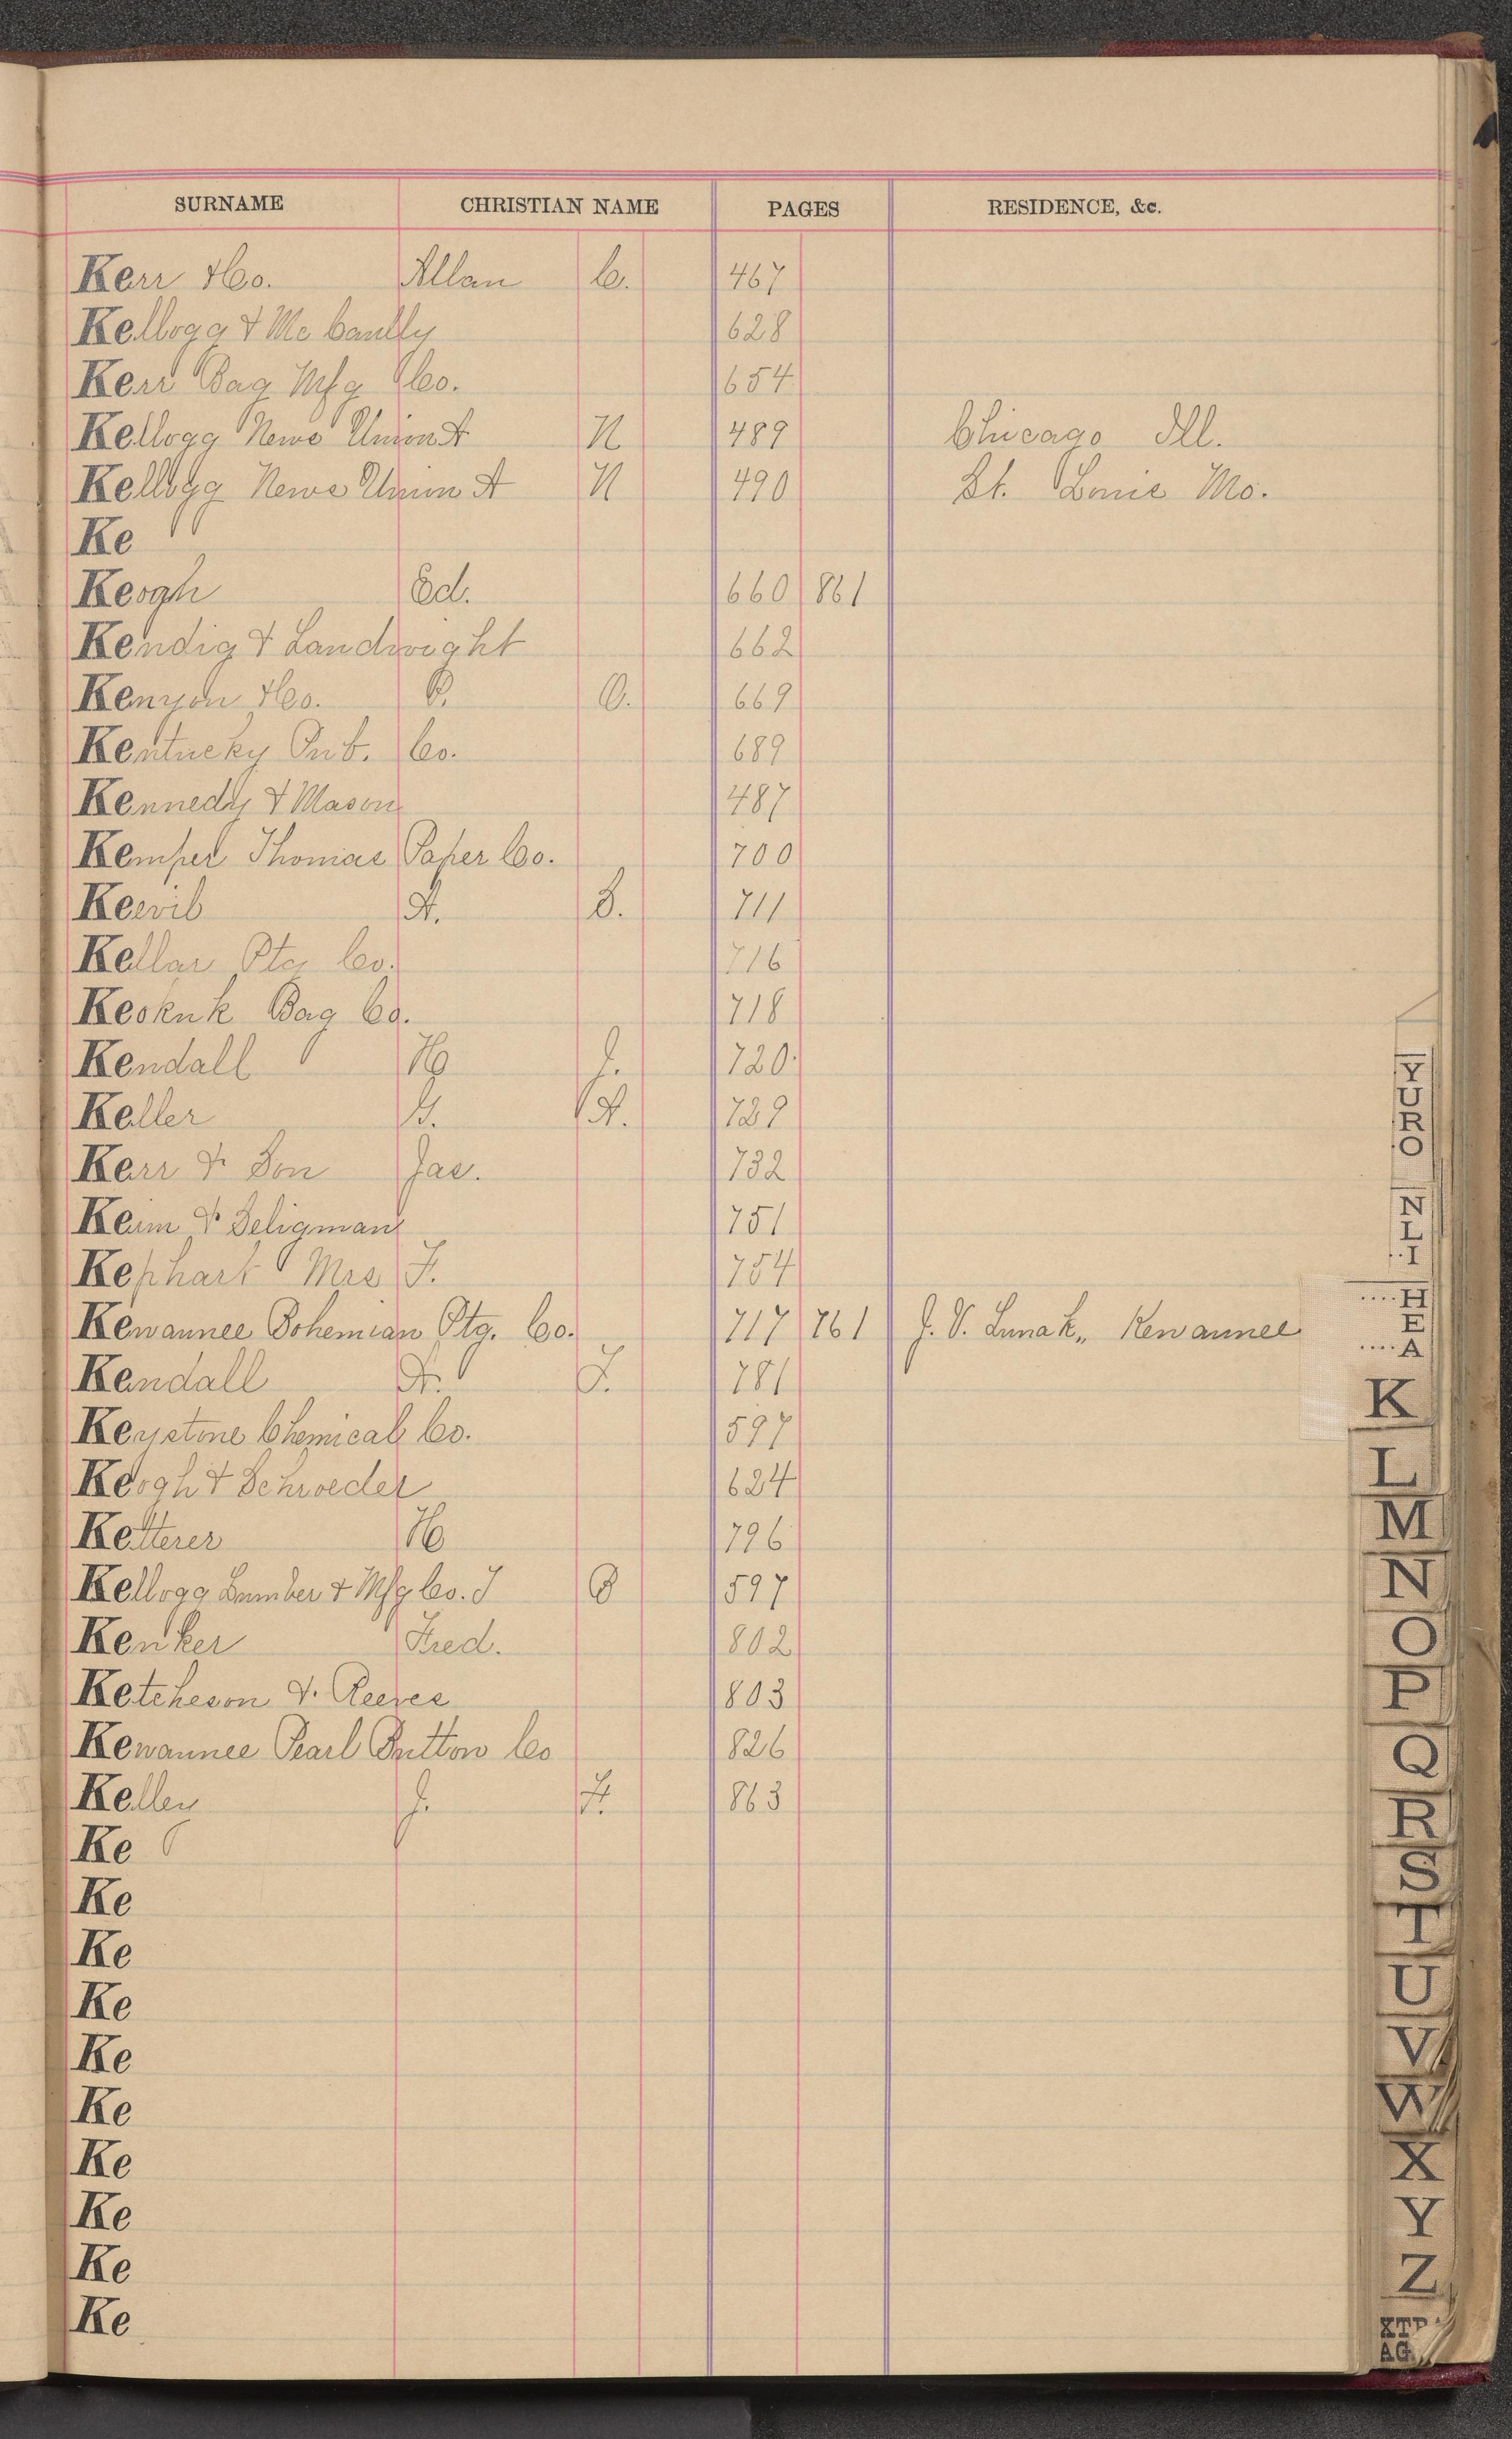 SURNAME CHRISTIAN NAME PAGES RESIDENCE, &c.
Kerr & Co. Allan C. 467
Kellogg & McCaully 628
Kerr Bag Mfg Co. 654
Kellogg News Union A N 489 Chicago Ill.
Kellogg News Union A N 490 St. Louis Mo.
Ke
Keogh Ed. 660 861
Kendig & Landwight 662
Kenyon & Co. C. O. 669
Kentucky Pub. Co. 689
Kennedy & Mason 487
Kemper Thomas Paper Co. 700
Keevil A. S. 711
Kellar Ptg Co. 716
Keokuk Bag Co. 718
Kendall H J. 720
Keller G. A. 729
Kerr & Son Jas. 732
Keim & Seligman 751
Kephart Mrs F. 754
Kewaunee Bohemian Ptg. Co. 717 761 J. V. Lunak,, Kewaunee
Kendall A. F. 781
Keystone Chemical Co. 597
Keogh & Schroeder 624
Ketterer H 796
Kellogg Lumber & Mfg Co. I B 597
Kenker Fred. 802
Ketcheson & Reeves 803
Kewaunee Pearl Button Co 826
Kelley J. F. 863
Ke
Ke
Ke
Ke
Ke
Ke
Ke
Ke
Ke
Ke
Y
U
R
O
N
L
I
H
E
A
K
L
M
N
O
P
Q
R
S
T
U
V
W
X
Y
Z